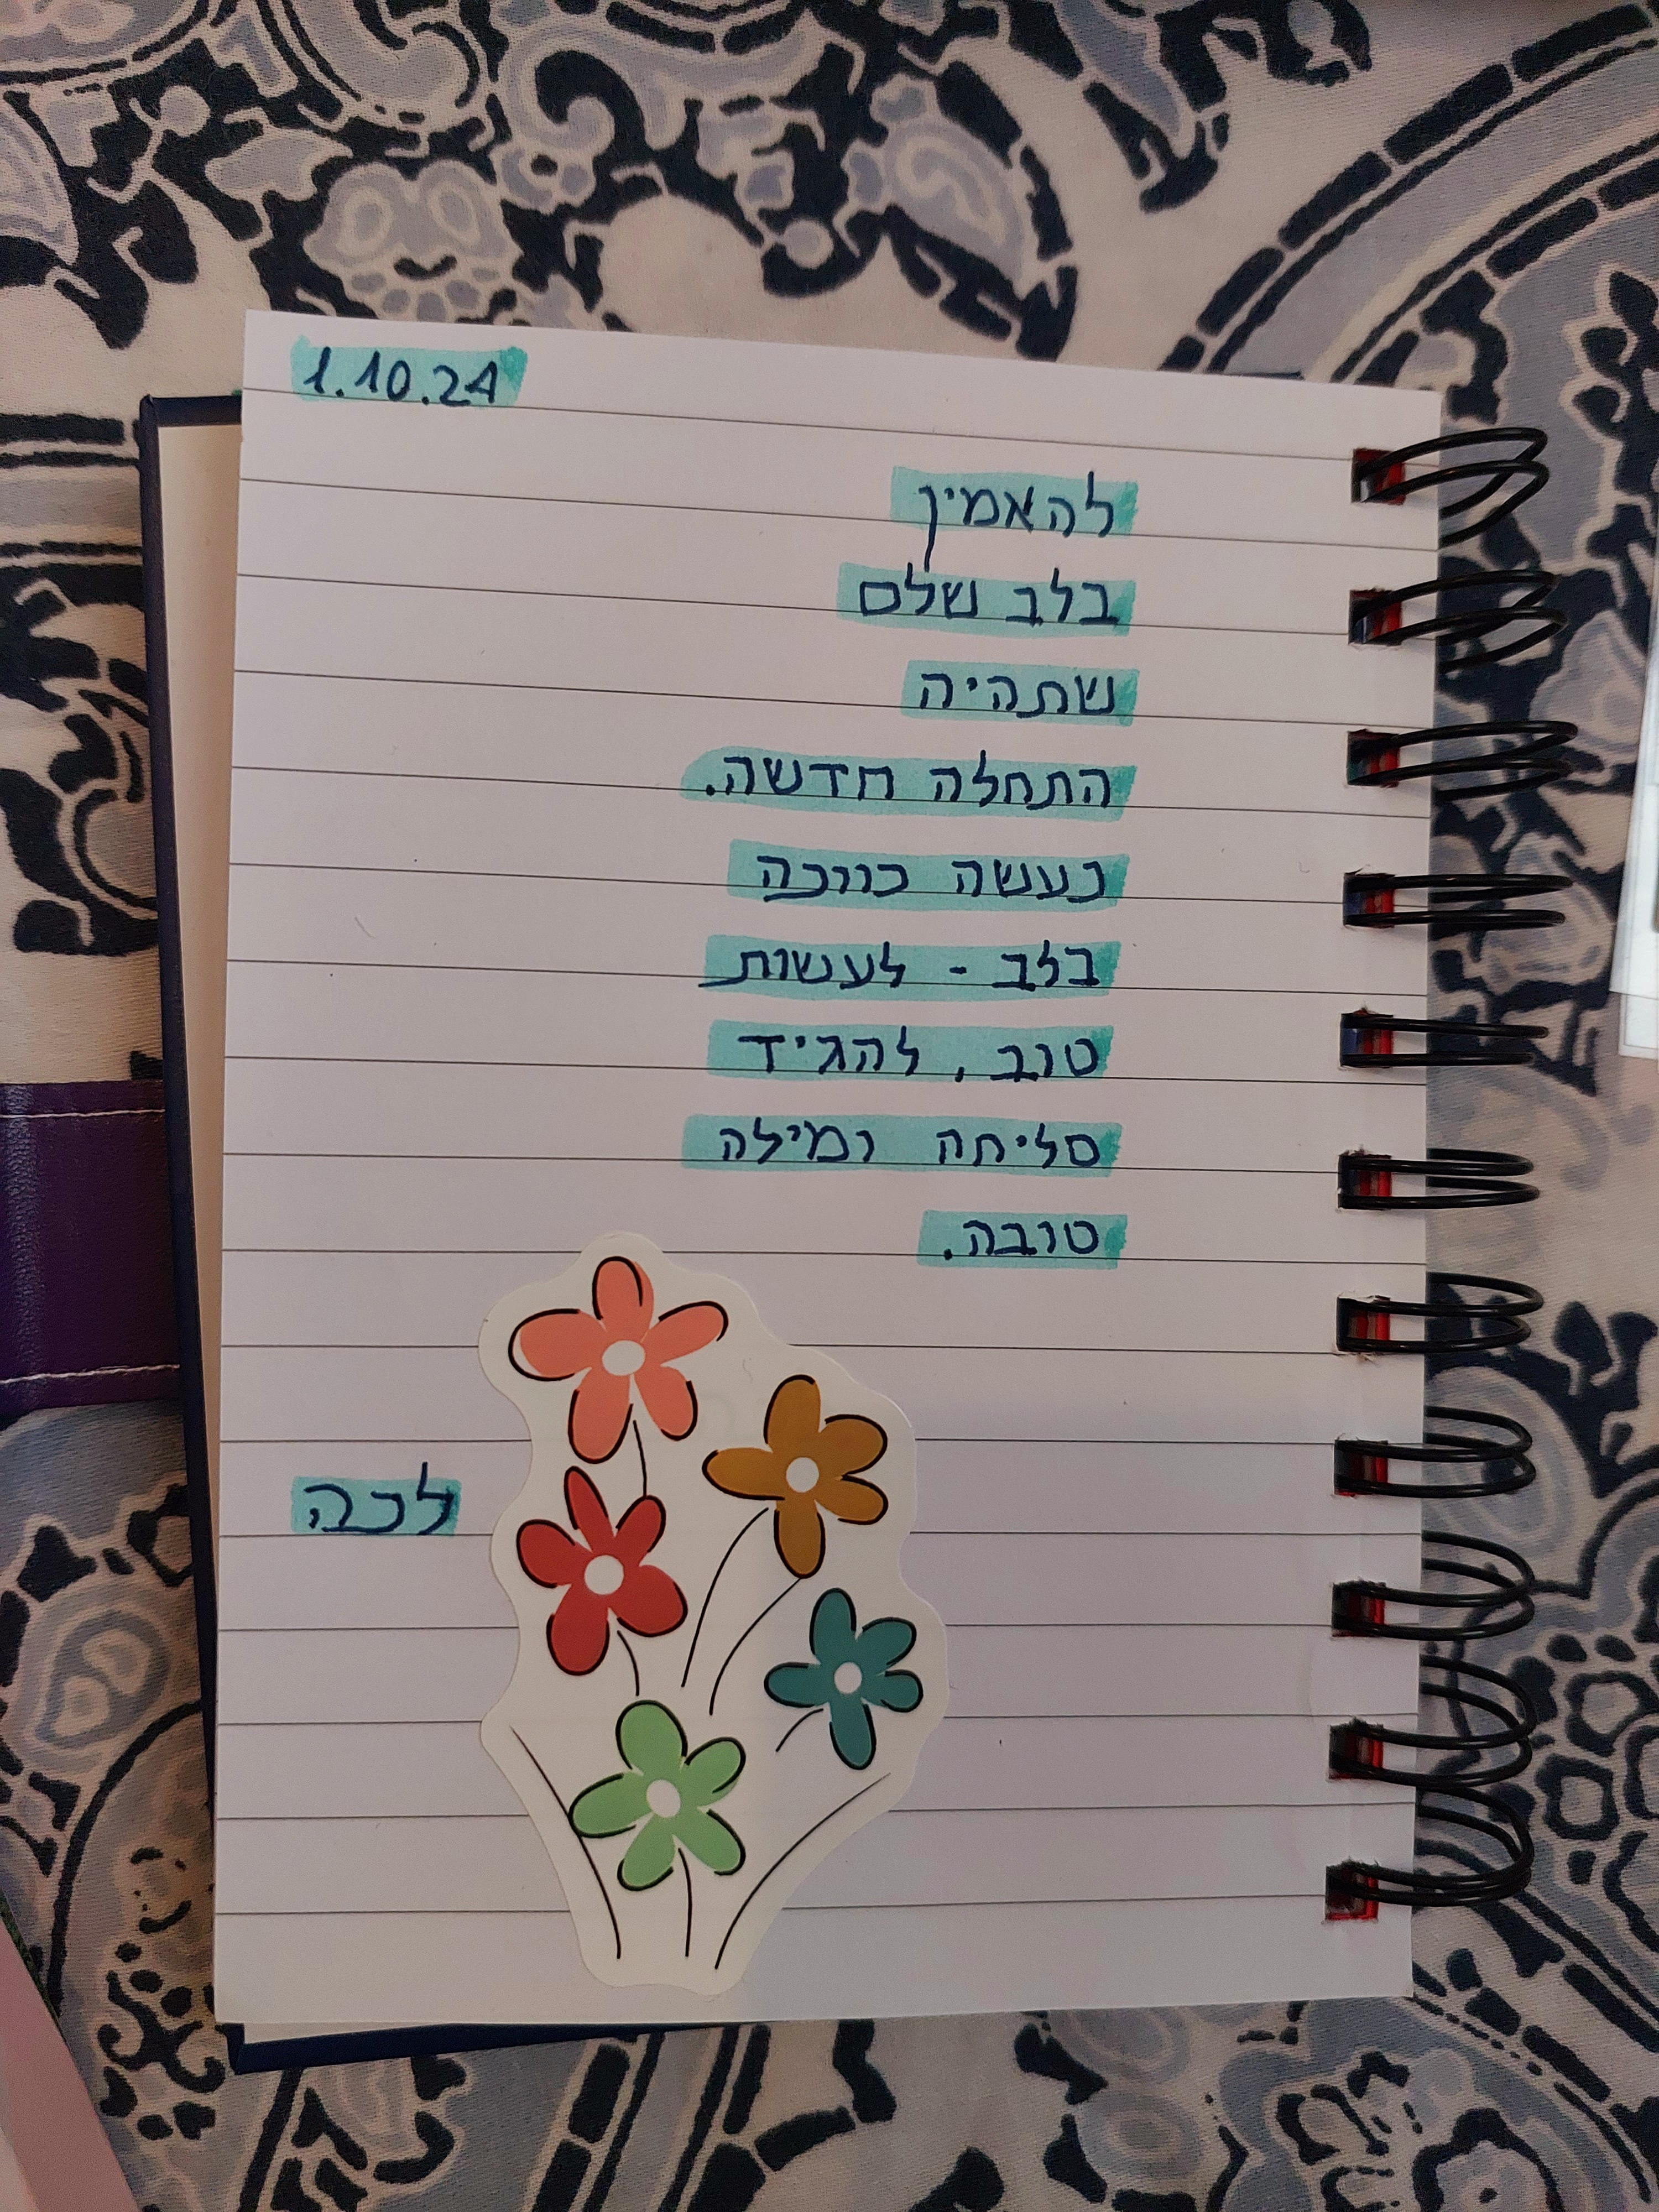 1.10.24
להאמין
בלב שלם
שתהיה
התחלה חדשה.
נעשה כוונה
בלב - לעשות
טוב, להגיד
סליחה ומילה
טובה.
לכה